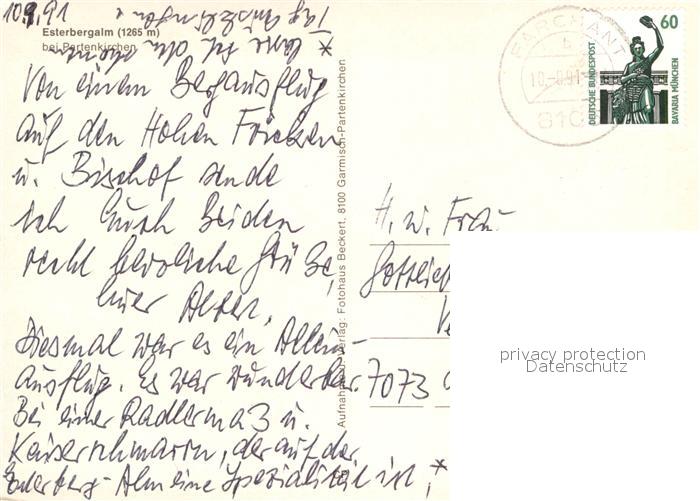 10.9.91
Esterbergalm (1265 m)
bei Partenkirchen
Von einem Bergausflug
auf den Hohen Fricken
u. Bischof sende
ich Euch Beiden
recht herzliche Grüße,
Euer Alfert.
Diesmal war es ein Allein-
Ausflug. Es war wunderbar.
Bei einer Radlermaß u.
Kaiserschmarrn, der auf der
Esterberg-Alm eine Spezialität ist, *
* ließ ich den schönen
Tag ausklingen.
Verlag: Fotohaus Beckert, 8100 Garmisch-Partenkirchen
FARCHANT
b
10.-9.91
810
60
DEUTSCHE BUNDESPOST
BAVARIA MÜNCHEN
H. u. Frau
Gottlieb
7073
privacy protection
Datenschutz